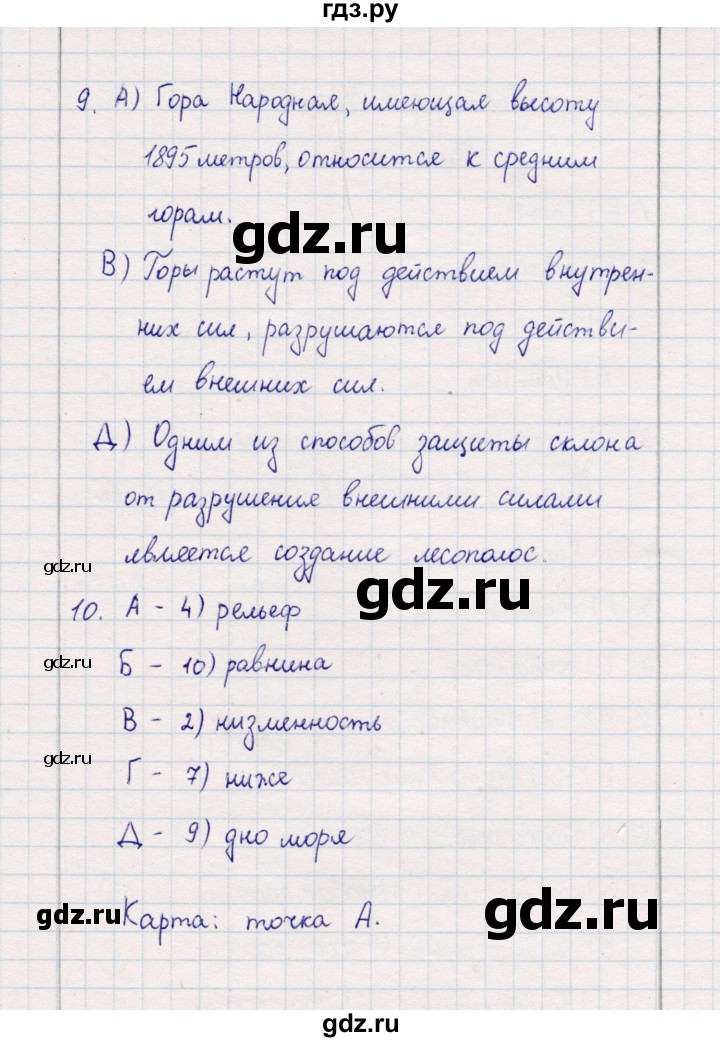 гдз.ру
9. А) Гора Народная, имеющая высоту
1895 метров, относится к средним
горам.
gdz.ru
В) Горы растут под действием внутрен-
них сил, разрушаются под действи-
ем внешних сил.
Д) Одним из способов защиты склона
от разрушения внешними силами
является создание лесополос.
gdz.ru
gdz.ru
10. А - 4) рельеф
gdz.ru
Б - 10) равнина
В - 2) низменность
gdz.ru
Г - 7) ниже
Д - 9) дно моря
gdz.ru
Карта: точка А.
gdz.ru
gdz.ru